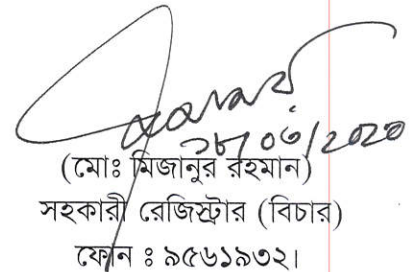 ১৮/০৬/২০২০
(মোঃ মিজানুর রহমান)
সহকারী রেজিস্ট্রার (বিচার)
ফোন ঃ ৯৫৬১৯৩২।